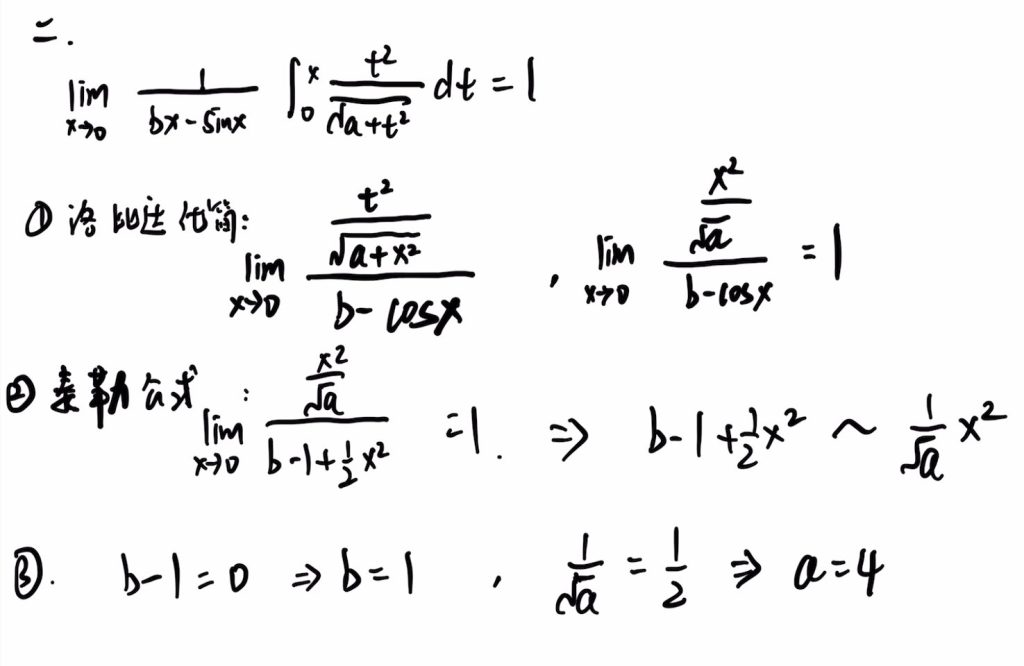 二.
lim_{x→0} \frac{1}{bx-sinx} ∫_0^x \frac{t^2}{\sqrt{a+t^2}} dt = 1
① 洛必达化简: lim_{x→0} \frac{\frac{t^2}{\sqrt{a+x^2}}}{b-cosx} , lim_{x→0} \frac{\frac{x^2}{\sqrt{a}}}{b-cosx} = 1
② 泰勒公式: lim_{x→0} \frac{\frac{x^2}{\sqrt{a}}}{b-1+\frac{1}{2}x^2} = 1. ⇒ b-1+\frac{1}{2}x^2 ~ \frac{1}{\sqrt{a}}x^2
③. b-1=0 ⇒ b=1 , \frac{1}{\sqrt{a}} = \frac{1}{2} ⇒ a=4